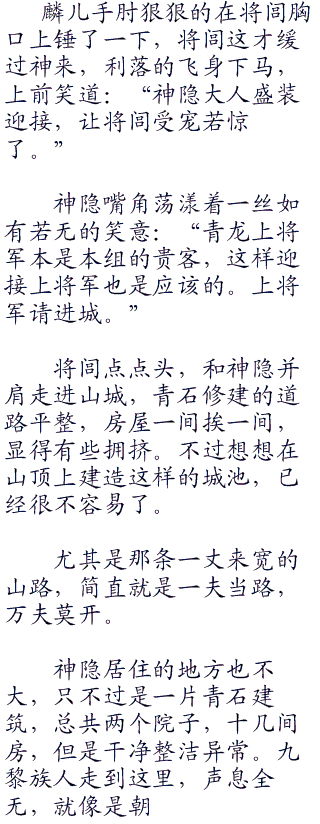 麟儿手肘狠狠的在将闾胸
口上锤了一下，将闾这才缓
过神来，利落的飞身下马，
上前笑道：“神隐大人盛装
迎接，让将闾受宠若惊
了。”
神隐嘴角荡漾着一丝如
有若无的笑意：“青龙上将
军本是本组的贵客，这样迎
接上将军也是应该的。上将
军请进城。”
将闾点点头，和神隐并
肩走进山城，青石修建的道
路平整，房屋一间挨一间，
显得有些拥挤。不过想想在
山顶上建造这样的城池，已
经很不容易了。
尤其是那条一丈来宽的
山路，简直就是一夫当路，
万夫莫开。
神隐居住的地方也不
大，只不过是一片青石建
筑，总共两个院子，十几间
房，但是干净整洁异常。九
黎族人走到这里，声息全
无，就像是朝